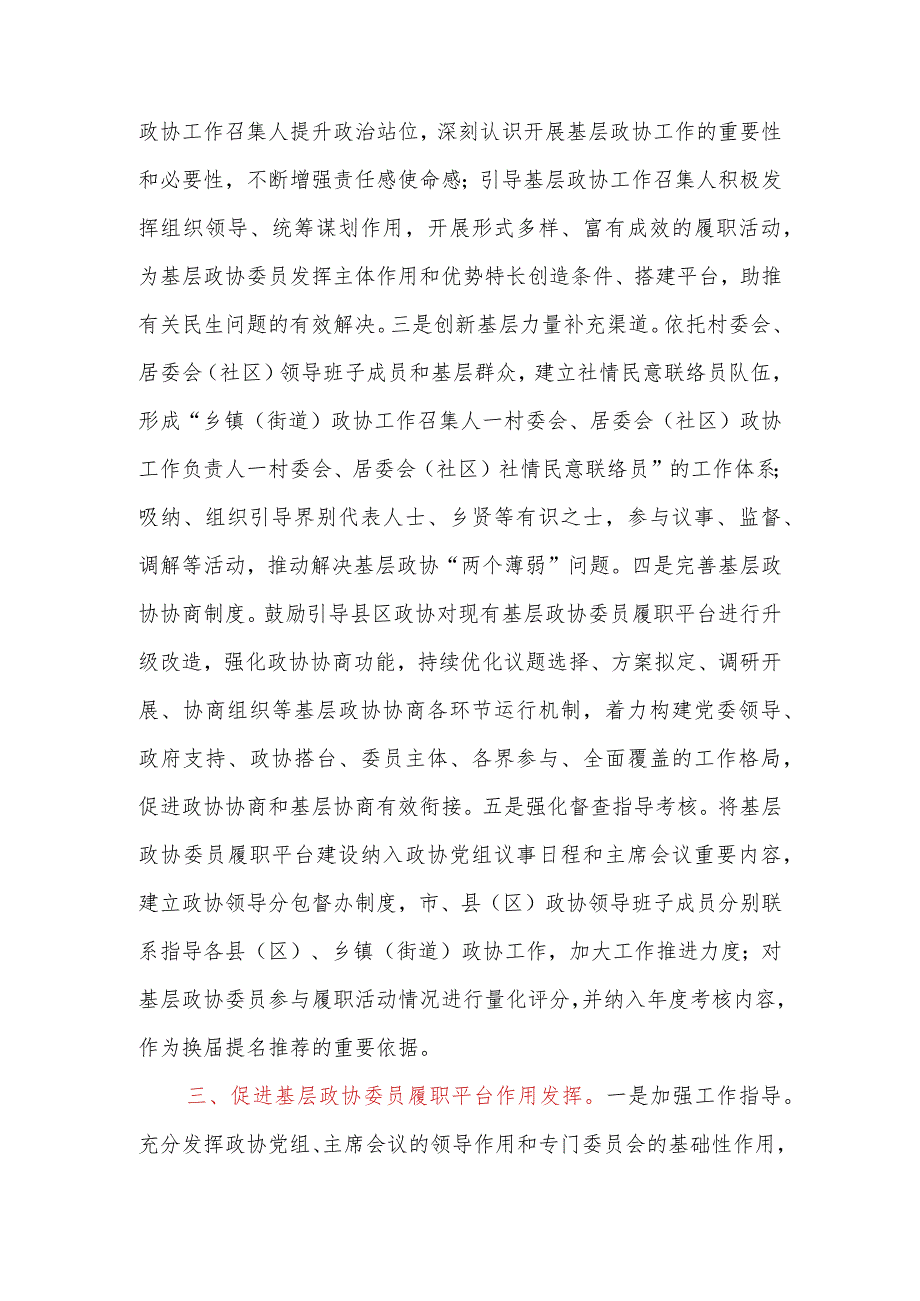 政协工作召集人提升政治站位，深刻认识开展基层政协工作的重要性
和必要性，不断增强责任感使命感；引导基层政协工作召集人积极发
挥组织领导、统筹谋划作用，开展形式多样、富有成效的履职活动，
为基层政协委员发挥主体作用和优势特长创造条件、搭建平台，助推
有关民生问题的有效解决。三是创新基层力量补充渠道。依托村委会、
居委会（社区）领导班子成员和基层群众，建立社情民意联络员队伍，
形成“乡镇（街道）政协工作召集人一村委会、居委会（社区）政协
工作负责人一村委会、居委会（社区）社情民意联络员”的工作体系；
吸纳、组织引导界别代表人士、乡贤等有识之士，参与议事、监督、
调解等活动，推动解决基层政协“两个薄弱”问题。四是完善基层政
协协商制度。鼓励引导县区政协对现有基层政协委员履职平台进行升
级改造，强化政协协商功能，持续优化议题选择、方案拟定、调研开
展、协商组织等基层政协协商各环节运行机制，着力构建党委领导、
政府支持、政协搭台、委员主体、各界参与、全面覆盖的工作格局，
促进政协协商和基层协商有效衔接。五是强化督查指导考核。将基层
政协委员履职平台建设纳入政协党组议事日程和主席会议重要内容，
建立政协领导分包督办制度，市、县（区）政协领导班子成员分别联
系指导各县（区）、乡镇（街道）政协工作，加大工作推进力度；对
基层政协委员参与履职活动情况进行量化评分，并纳入年度考核内容，
作为换届提名推荐的重要依据。
三、促进基层政协委员履职平台作用发挥。一是加强工作指导。
充分发挥政协党组、主席会议的领导作用和专门委员会的基础性作用，